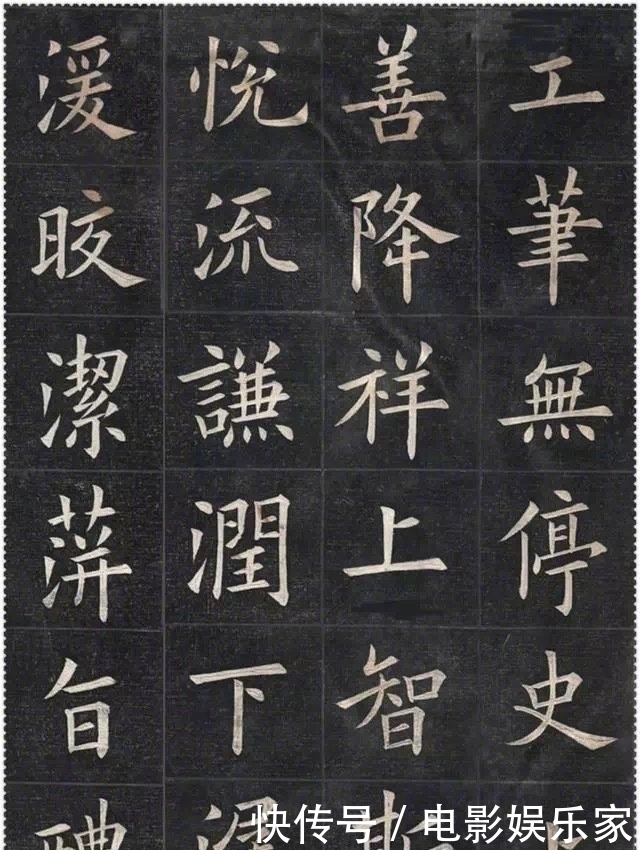 工筆無停史
善降祥上智
悅流謙潤下
湲晈潔萍旨醴
快传号/电影娱乐家